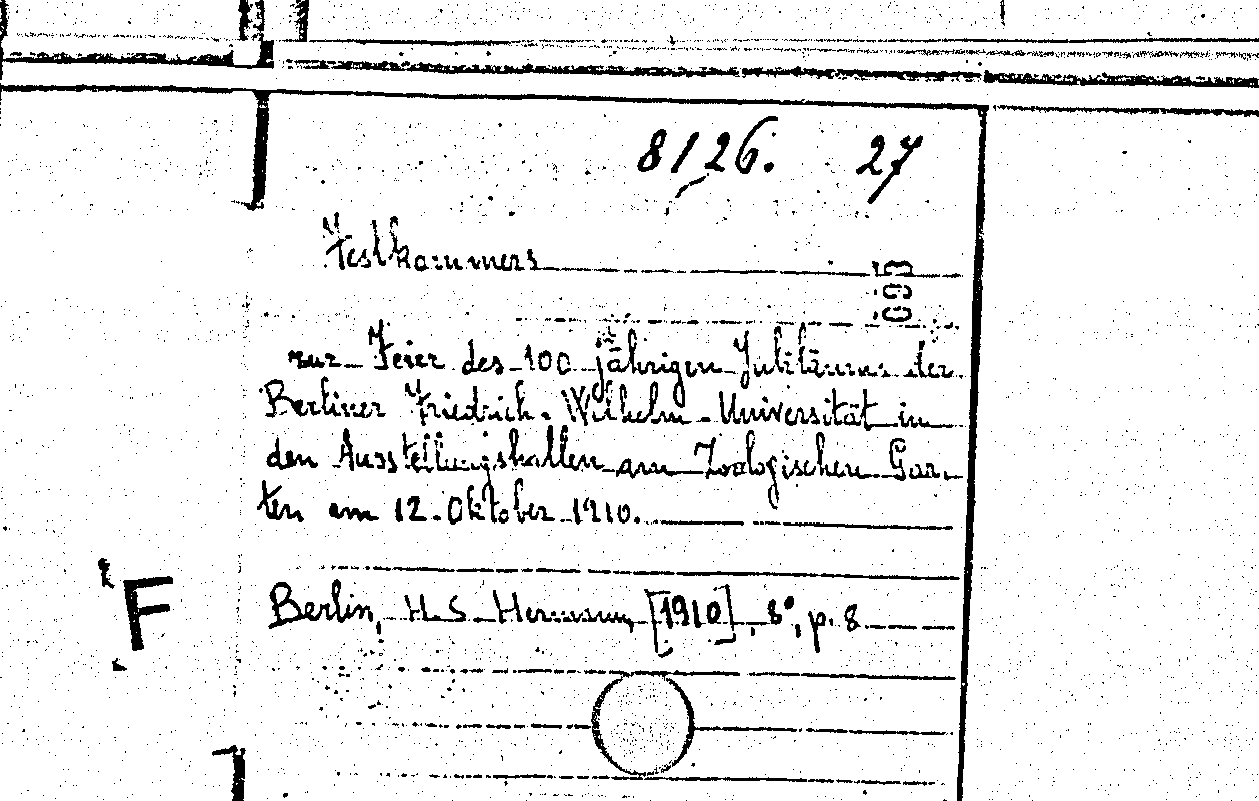 8126. 27
Festkommers
zur Feier des 100 jährigen Jubiläums der
Berliner Friedrich-Wilhelm-Universität in
den Ausstellungshallen am Zoologischen Gar-
ten am 12. Oktober 1910.
F
Berlin, H. S. Hermann, [1910], 8°, p. 8